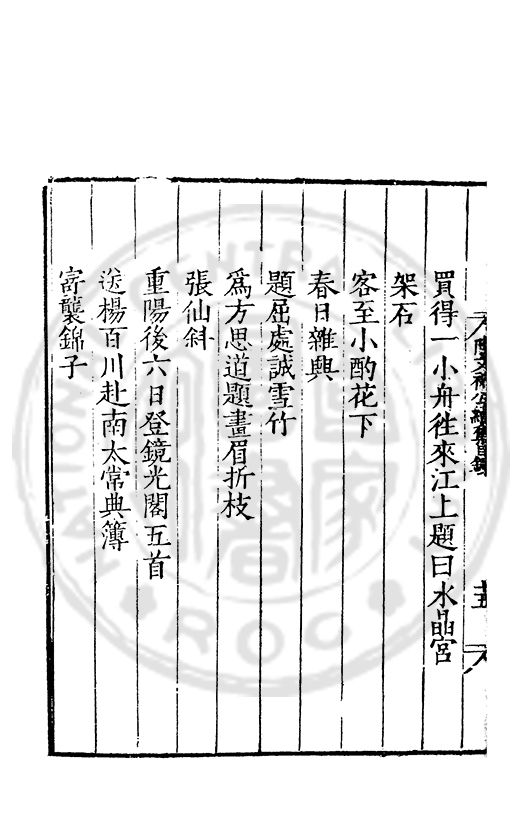 買得一小舟徃來江上題曰水晶宮
架石
客至小酌花下
春日雜興
題屈處誠雪竹
爲方思道題畫眉折枝
張仙斜
重陽後六日登鏡光閣五首
送楊百川赴南太常典簿
寄襲錦子